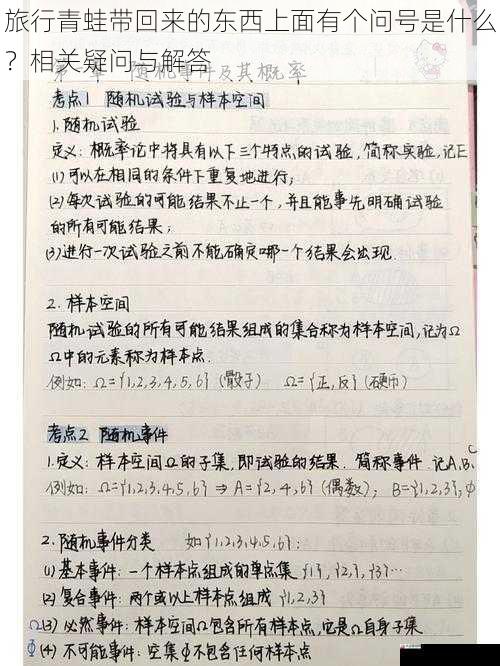 旅行青蛙带回来的东西上面有个问号是什么
？相关疑问与解答
随机事件及其概率
考点1 随机试验与样本空间
1.随机试验
定义:概率论中将具有以下三个特点的试验,简称实验,记E
(1)可以在相同的条件下重复地进行;
(2)每次试验的可能结果不止一个,并且能事先明确试验
的所有可能结果;
(3)进行一次试验之前不能确定哪一个结果会出现.
2.样本空间
随机试验的所有可能结果组成的集合称为样本空间,记为Ω
Ω中的元素称为样本点.
例如:Ω={1,2,3,4,5,6}(骰子) Ω={正,反}(硬币)
考点2 随机事件
1.定义:样本空间Ω的子集,即试验的结果.简称事件.记A,B,C
例如:Ω={1,2,3,4,5,6}⇒A={2,4,6}(偶数); B={1,2,3},Φ
2.随机事件分类 如{1,2,3,4,5,6};
(1)基本事件:一个样本点组成的单点集{1},{2},{3}…
(2)复合事件:两个或以上样本点组成{1,2,3}
Ω(3)必然事件:样本空间Ω包含所有样本点,它是Ω自身子集
Φ(4)不可能事件:空集Φ不包含任何样本点